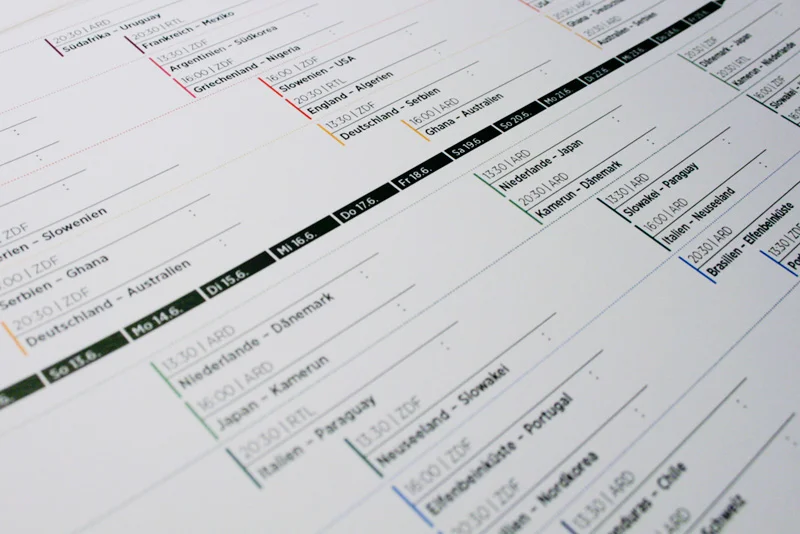 20:30 | ZDF
Südafrika – Uruguay
20:30 | RTL
Frankreich – Mexiko
13:30 | ZDF
Argentinien – Südkorea
16:00 | ZDF
Griechenland – Nigeria
16:00 | ZDF
Slowenien – USA
20:30 | RTL
England – Algerien
13:30 | ZDF
Deutschland – Serbien
16:00 | ARD
Ghana – Australien
USA
Ghana – Deutschland
20:30 | ZDF
Australien – Serbien
erien – Slowenien
:00 | ZDF
Serbien – Ghana
20:30 | ZDF
Deutschland – Australien
So 13.6.
Mo 14.6.
Di 15.6.
Mi 16.6.
Do 17.6.
Fr 18.6.
Sa 19.6.
So 20.6.
Mo 21.6.
Di 22.6.
Mi 23.6.
Do 24.6.
20:30 | ZDF
Dänemark – Japan
20:30 | RTL
Kamerun – Niederlande
16:00 | ZDF
Slowakei –
13:30 | ARD
Niederlande – Japan
20:30 | ARD
Kamerun – Dänemark
13:30 | ARD
Slowakei – Paraguay
16:00 | ARD
Italien – Neuseeland
20:30 | ARD
Brasilien – Elfenbeinküste
13:30 | ZDF
13:30 | ARD
Niederlande – Dänemark
16:00 | ARD
Japan – Kamerun
20:30 | RTL
Italien – Paraguay
13:30 | ZDF
Neuseeland – Slowakei
16:00 | ZDF
Elfenbeinküste – Portugal
20:30 | ZDF
ilien – Nordkorea
13:30 | ARD
nduras – Chile
ARD
Schweiz